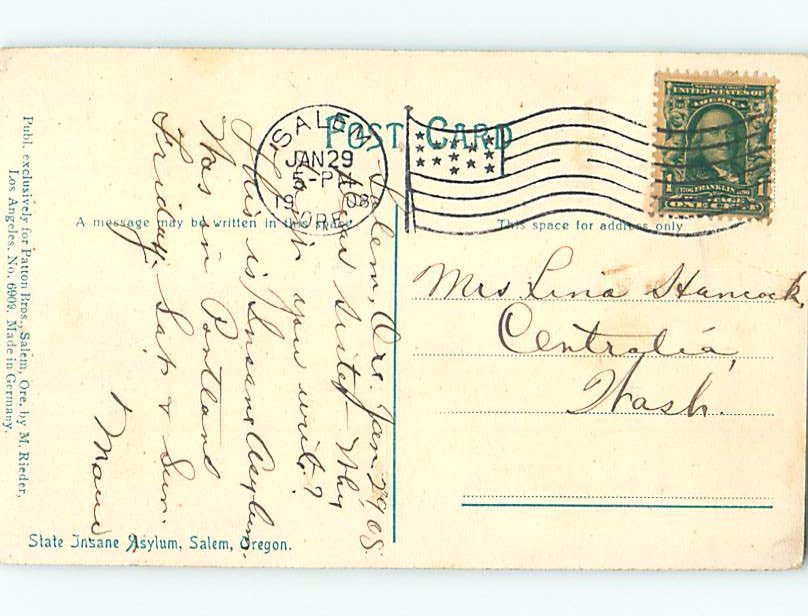 POST CARD
SALEM
JAN 29
5-PM
1908
ORE.
SERIES 1902
UNITED STATES OF
AMERICA
1706 FRANKLIN 1790
1 1
ONE CENT
A message may be written in this space
This space for address only
Mrs Lina Hancock
Centralia,
Wash.
Salem, Ore. Jan. 29, 08.
Dear Sister- Why
don't you write?
This is Insane Asylum.
Was in Portland
Friday. Sat & Sun.
Maud
Publ. exclusively for Patton Bros., Salem, Ore. by M. Rieder,
Los Angeles. No. 6909. Made in Germany.
State Insane Asylum, Salem, Oregon.